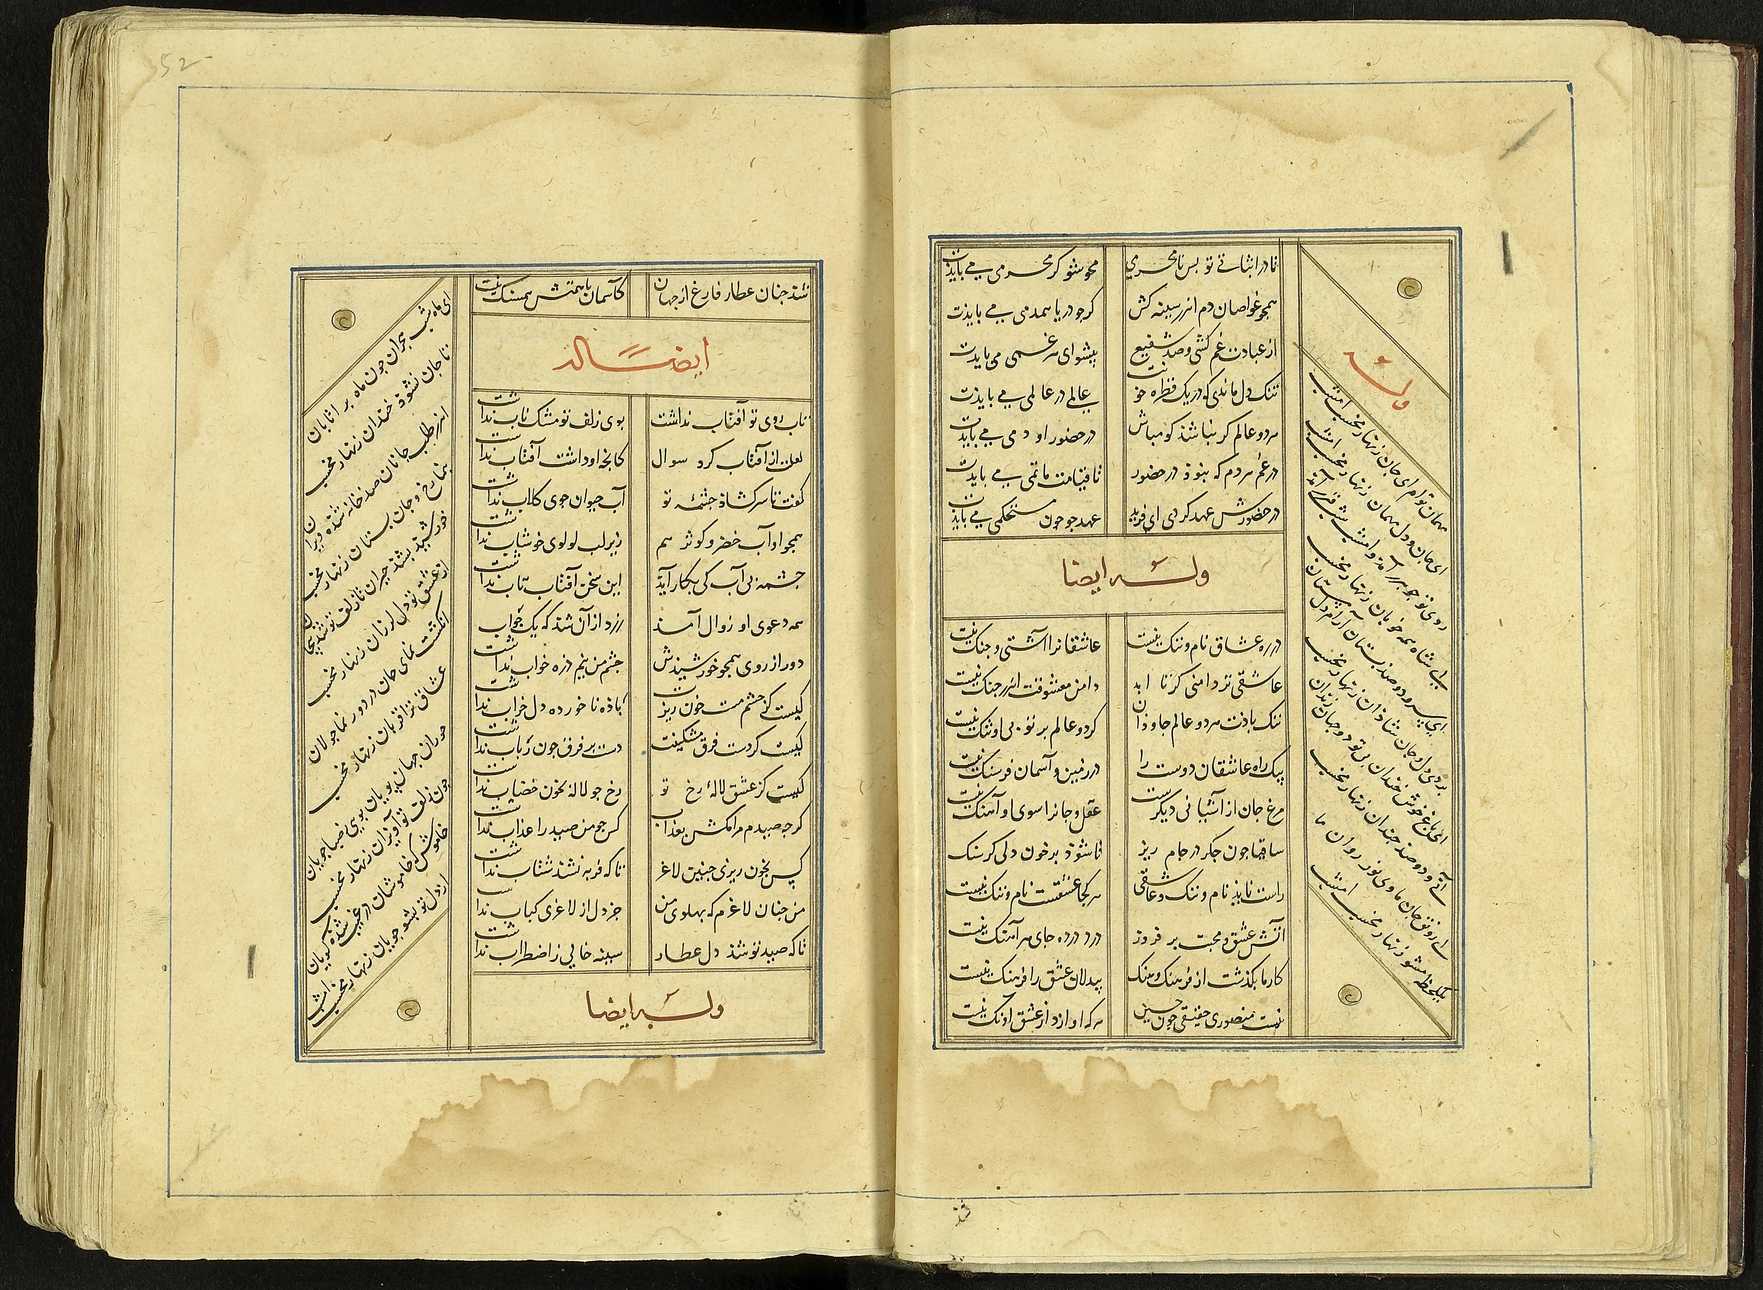 52
تا در اثبات تو بس نامحرمی محو شو گر محرمی می بایدت
همچو غواصان دم اندر سینه کش گر چو دریا همدمی می بایدت
از عبادت غم کشی و صد شفیع پیشوای هر غمی می بایدت
تنک دل ماندی که در یک قطره خونست عالمی در عالمی می بایدت
هر دو عالم گر نباشد کو مباش در حضور او دمی می بایدت
در غم هر دم که نبود در حضور تا قیامت ماتمی می بایدت
در حضورش عهد کردی ای فرید عهد جو چون مستحکمی می بایدت
وله ایضا
در ره عشاق نام و ننک نیست عاشقانرا آشتی و جنک نیست
عاشقی تردامنی گر تا ابد دامن معشوقت اندر جنک نیست
ننک بادت هر دو عالم جاودان گر دو عالم بر تو بی او تنک نیست
پیک راه عاشقان دوست را در زمین و آسمان فرسنک نیست
مرغ جان از آشیانی دیکرست عقل و جانرا سوی او آهنک نیست
ساقیا خون جکر در جام ریز تا شود پر خون دلی کز سنک نیست
راست ناید نام و ننک و عاشقی هر کجا عشقست نام و ننک نیست
آتش عشق و محبت بر فروز
کار ما بکذشت از فرهنک و هنک بیدلان عشق را فرهنک نیست
نیست منصوری حقیقی چون حسین هر که او از دار عشق آونک نیست
وله
مهمان توام ای جان زنهار مخسب امشب
ای جان و دل مهمان زنهار مخسب امشب
روی تو چو بدر آمد و امشب شب قدر آمد
ای شاه همه خوبان زنهار مخسب
ای سرو دو صد بستان آرام دل مستان
بردی دل و جان بستان زنهار مخسب
ای باغ خوش خندان بی تو دو جهان زندان
آنی و دو صد چندان زنهار مخسب
یکلحظه مشو زنهار مخسب امشب
شد چنان عطار فارغ از جهان کآسمان با همتش همسنک نیست
ایضا له
تاب روی تو آفتاب نداشت بوی زلف تو مشک ناب نداشت
لعلت از آفتاب کرد سوال کانچه او داشت آفتاب نداشت
کفت تا سر کشاد چشمه تو آب حیوان جوی کلاب نداشت
همچو او آب خضر و کوثر هم زیر لب لولوی خوشاب نداشت
چشمه بی آب کی بکار آید این سخن آفتاب تاب نداشت
همه دعوی او زوال آمد زرد از آن شد که یک جواب نداشت
دور از روی همچو خورشیدش چشم من نیم ذره خواب نداشت
کیست کز چشم مست خون ریزت باده نا خورده دل خراب نداشت
کیست کز دست فرق مشکینت دست بر فرق چون رباب نداشت
کیست کز عشق لاله رخ تو رخ چو لاله بخون خضاب نداشت
کرچه صیدم مرا مکش بعذاب کس چو من صید را عذاب نداشت
پس بخون ریزی چنین لاغر تا که فربه نشد شتاب نداشت
من چنان لاغرم که پهلوی من جز دل از لاغری کباب نداشت
تا که صید تو شد دل عطار سینه خالی ز اضطراب نداشت
وله ایضا
ای ماه شب هجران چون ماه بر آ تابان
تا جان نشود خندان زنهار مخسب
اندر طلب جانان صد خانه شده ویران
بنما رخ و جان بستان زنهار مخسب
خورشید بشد حیران تا زلف تو شد پیچان
از عشق تو دل لرزان زنهار مخسب
انکشت نمای جان در دور نما جولان
عشاق ترا قربان زنهار مخسب
حوران جهان پویان بوی رضا جویان
چون زلف تو آویزان زنهار مخسب
خاموش که خاموشان در غیب شده کویان
از دل تو بشو جویان زنهار مخسب امشب